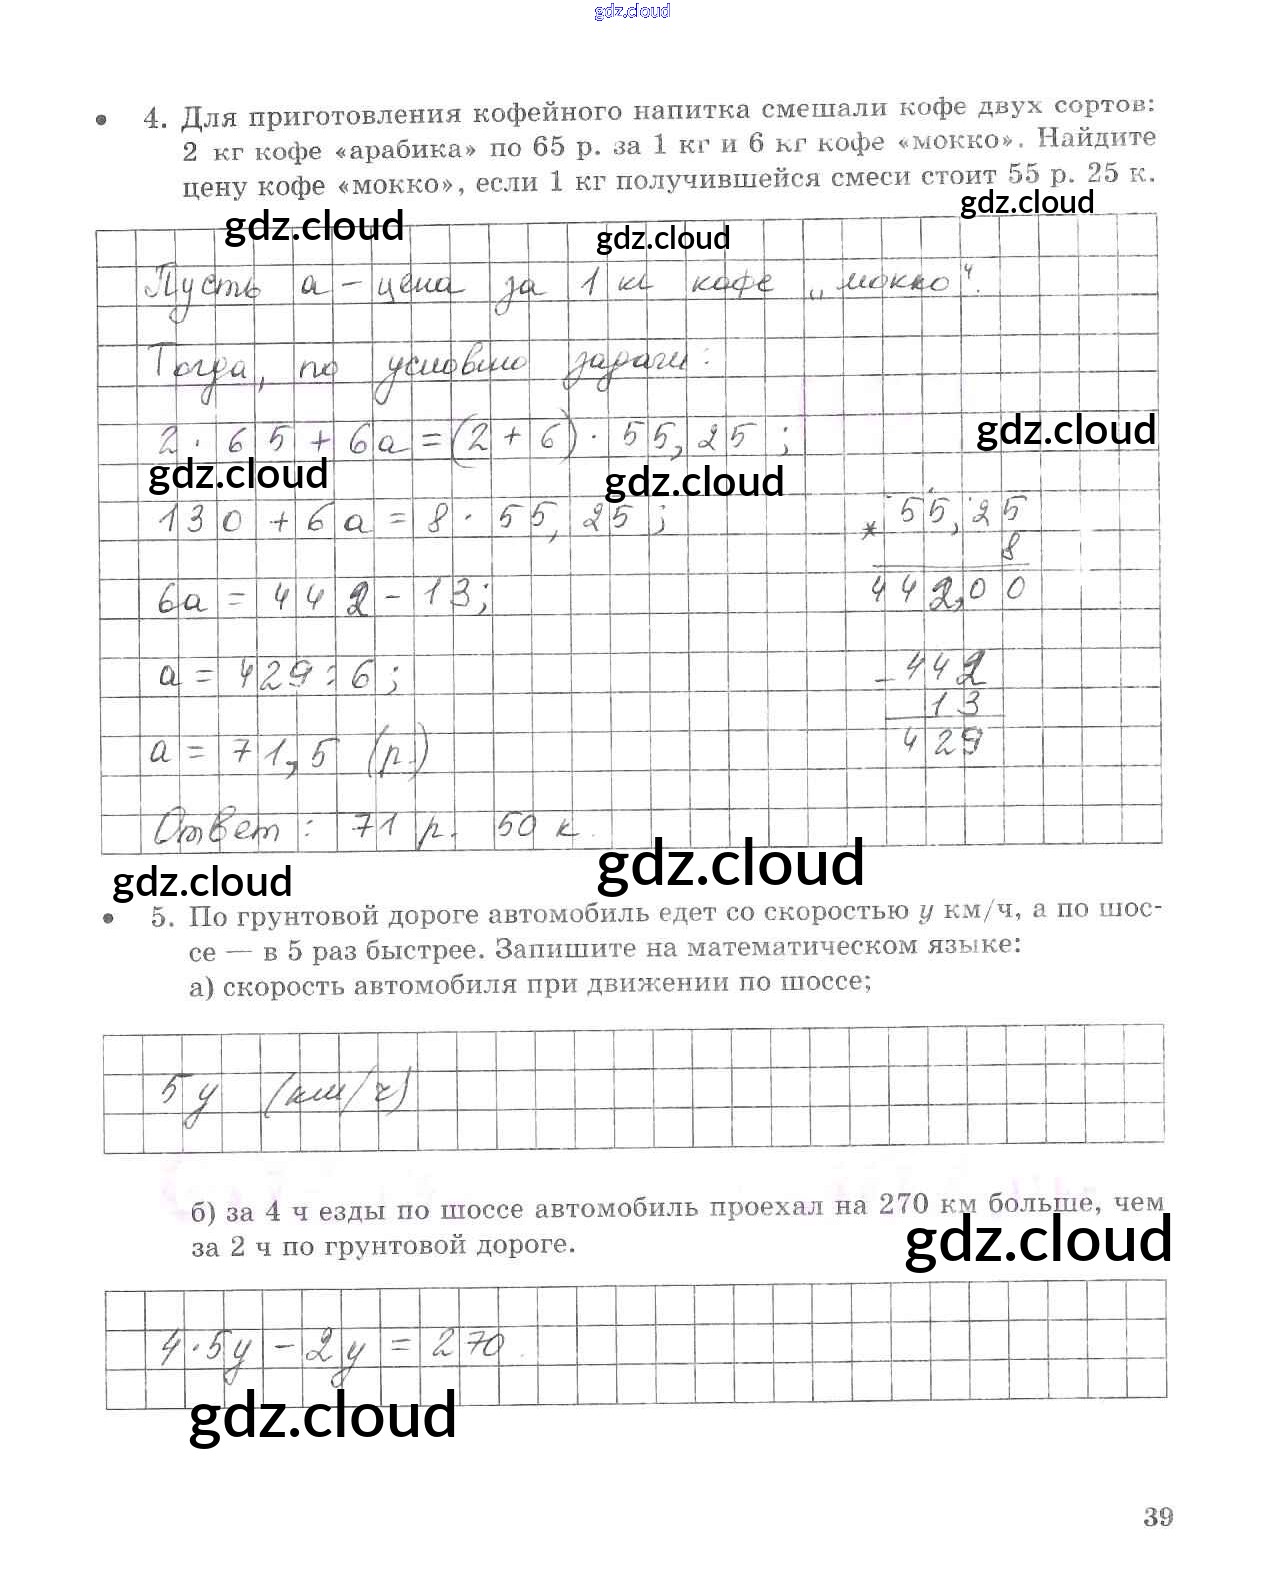 gdz.cloud
4. Для приготовления кофейного напитка смешали кофе двух сортов:
2 кг кофе «арабика» по 65 р. за 1 кг и 6 кг кофе «мокко». Найдите
цену кофе «мокко», если 1 кг получившейся смеси стоит 55 р. 25 к.
gdz.cloud gdz.cloud gdz.cloud
Пусть а – цена за 1 кг кофе „мокко“.
Тогда, по условию задачи:
2 · 65 + 6а = (2 + 6) · 55,25 ;
gdz.cloud
gdz.cloud gdz.cloud
130 + 6а = 8 · 55,25 ;
55,25
* 8
6а = 442 – 13;
442,00
а = 429 : 6 ;
– 442
13
а = 71,5 (р.)
429
Ответ : 71 р. 50 к.
gdz.cloud gdz.cloud
5. По грунтовой дороге автомобиль едет со скоростью у км/ч, а по шос-
се — в 5 раз быстрее. Запишите на математическом языке:
а) скорость автомобиля при движении по шоссе;
5у (км/ч)
б) за 4 ч езды по шоссе автомобиль проехал на 270 км больше, чем
за 2 ч по грунтовой дороге.
gdz.cloud
4·5у – 2у = 270.
gdz.cloud
39